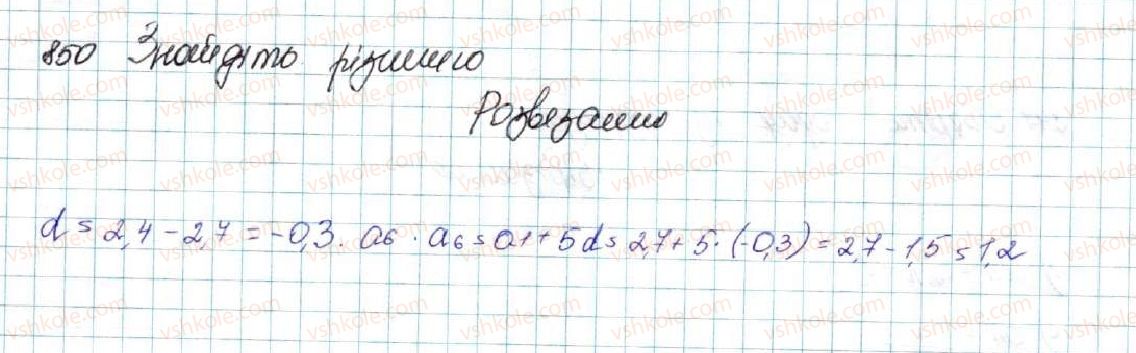 850 Знайдіть різницю
Розвязання
d = 2,4 - 2,7 = -0,3. a6. a6 = a1 + 5d = 2,7 + 5 · (-0,3) = 2,7 - 1,5 = 1,2